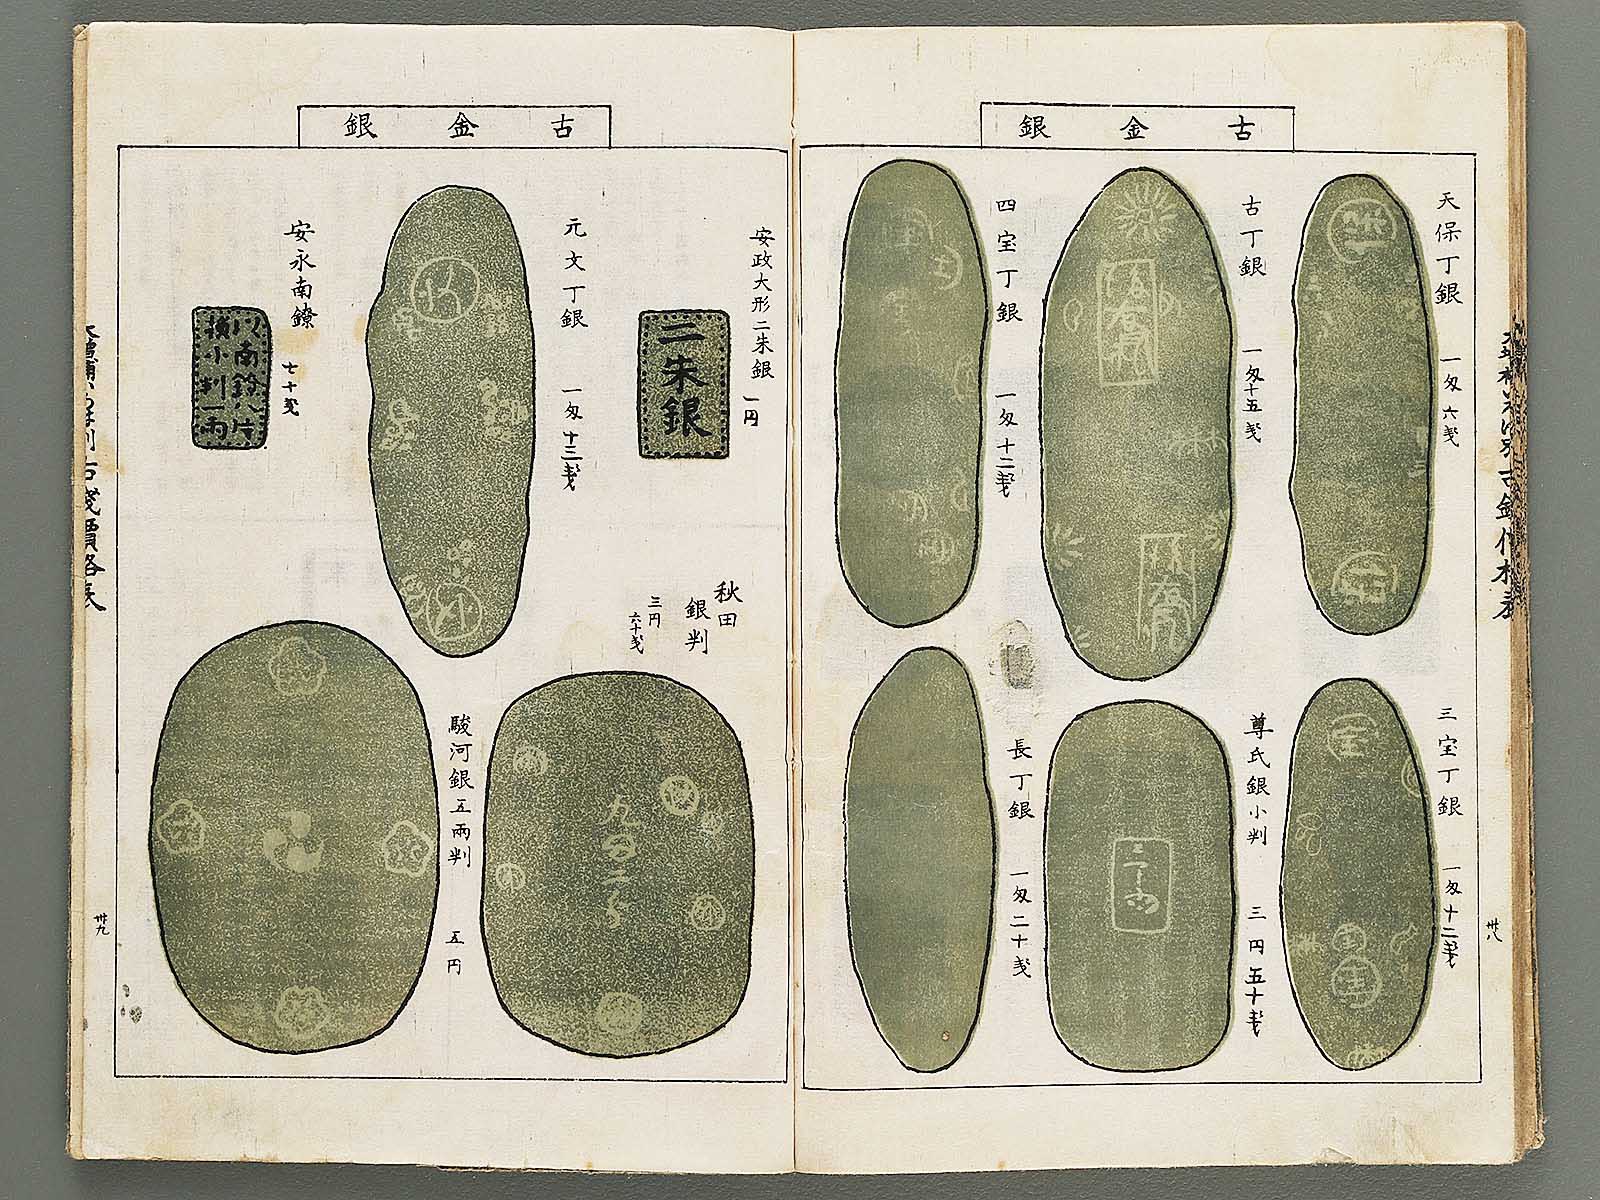 古金銀
天保丁銀 一匁六戔
古丁銀 一匁十五戔
四宝丁銀 一匁十二戔
三宝丁銀 一匁十二戔
尊氏銀小判 三円五十戔
長丁銀 一匁二十戔
卅八
古金銀
安政大形二朱銀 一円
二朱銀
元文丁銀 一匁十三戔
安永南鐐 七十戔
以南鐐八片
換小判一兩
秋田
銀判
三円
六十戔
駿河銀五兩判 五円
古錢價格表
卅九